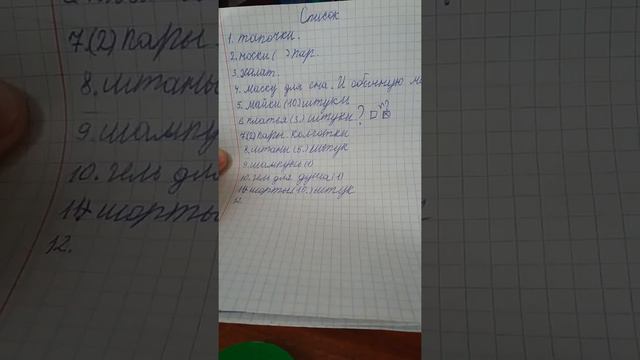 Список
1. тапочки.
2. носки ( ) пар.
3. халат.
4. маску для сна. И обычную
5. майки (10) штуки
6 платья (3.) штуки ?
7(2) пары колготки
8. штаны (5.) штук
9. шампунь (1)
10. гель для душа (1)
11. шорты (10.) штук
12.
7.(2) пары
8. штаны
9. шампу
10. гель для
11 шорты
12.